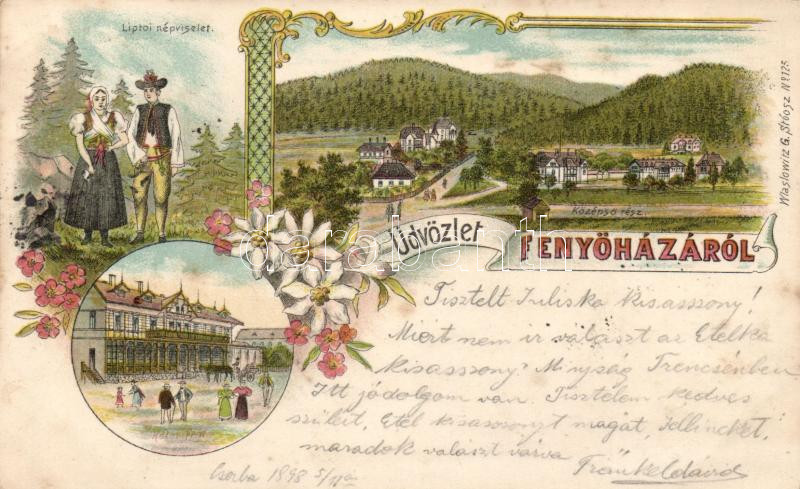 Liptoi népviselet.
Középső rész.
Üdvözlet
FENYŐHÁZÁRÓL
Waslowitz G. Stoosz Nº 125
darabanth
Tisztelt Juliska kisasszony!
Miért nem ir választ az Etelka
kisasszony? Mi ujság Trencsénben
Itt jó dolgom van. Tisztelem kedves
szüleit, Etel kisasszonyt magát,
maradok választ várva
Fränkel Dávid
Csorba 1898